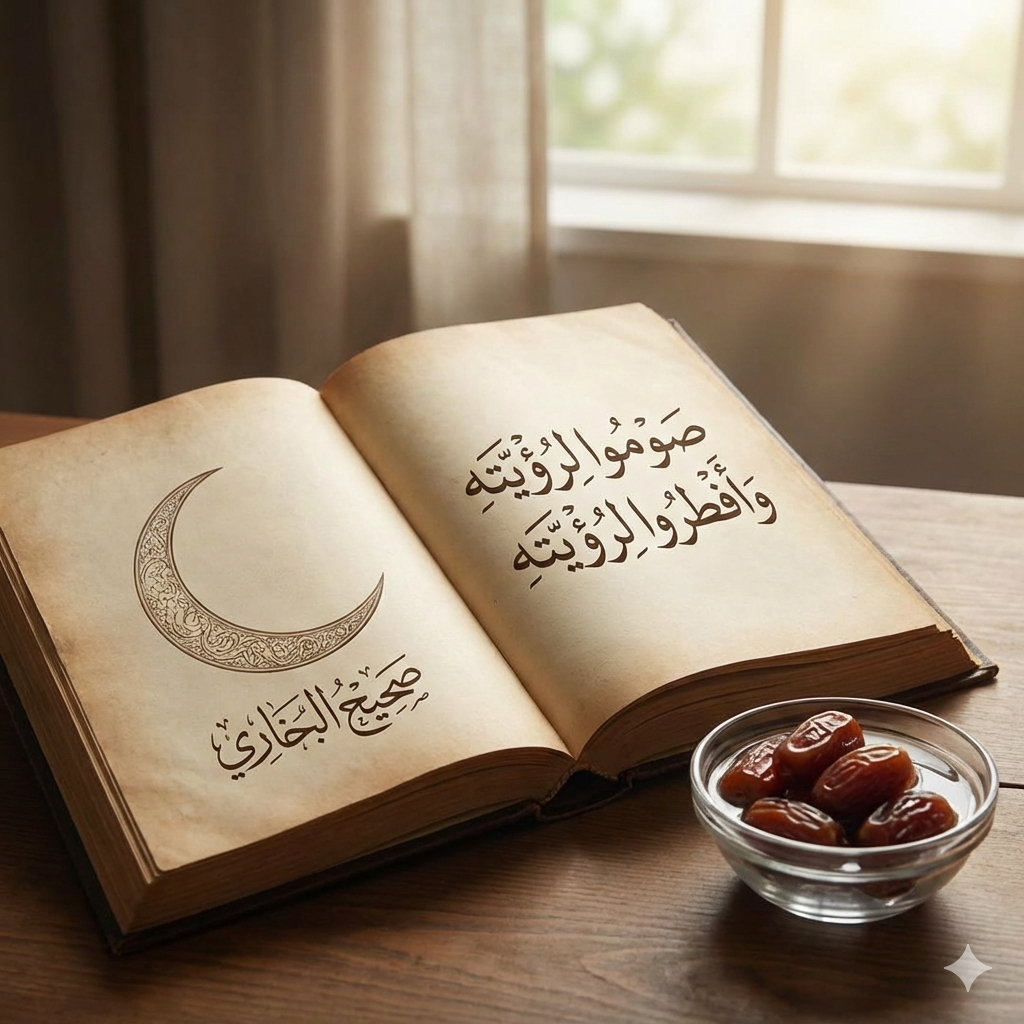 صَوْمُوا لِرُؤْيَتَّهِ
وَأَفْطَرُوا لِرُؤْيَتَّهِ
صَحِيْحُ البَخَارِي